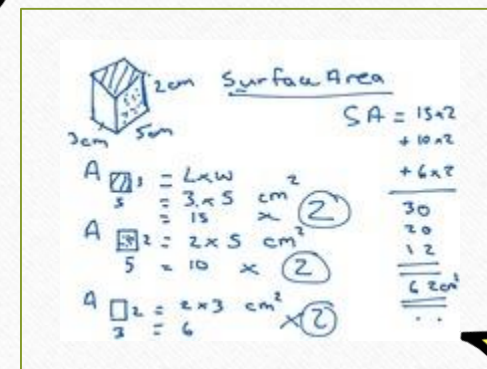 2cm Surface Area
3cm 5cm
SA = 15x2
+ 10x2
+ 6x2
30
20
12
62cm²
A 3 = LxW
5 = 3x5 cm²
= 15 x 2
A 2 = 2x5 cm²
5 = 10 x 2
A 2 = 2x3 cm²
3 = 6 x2